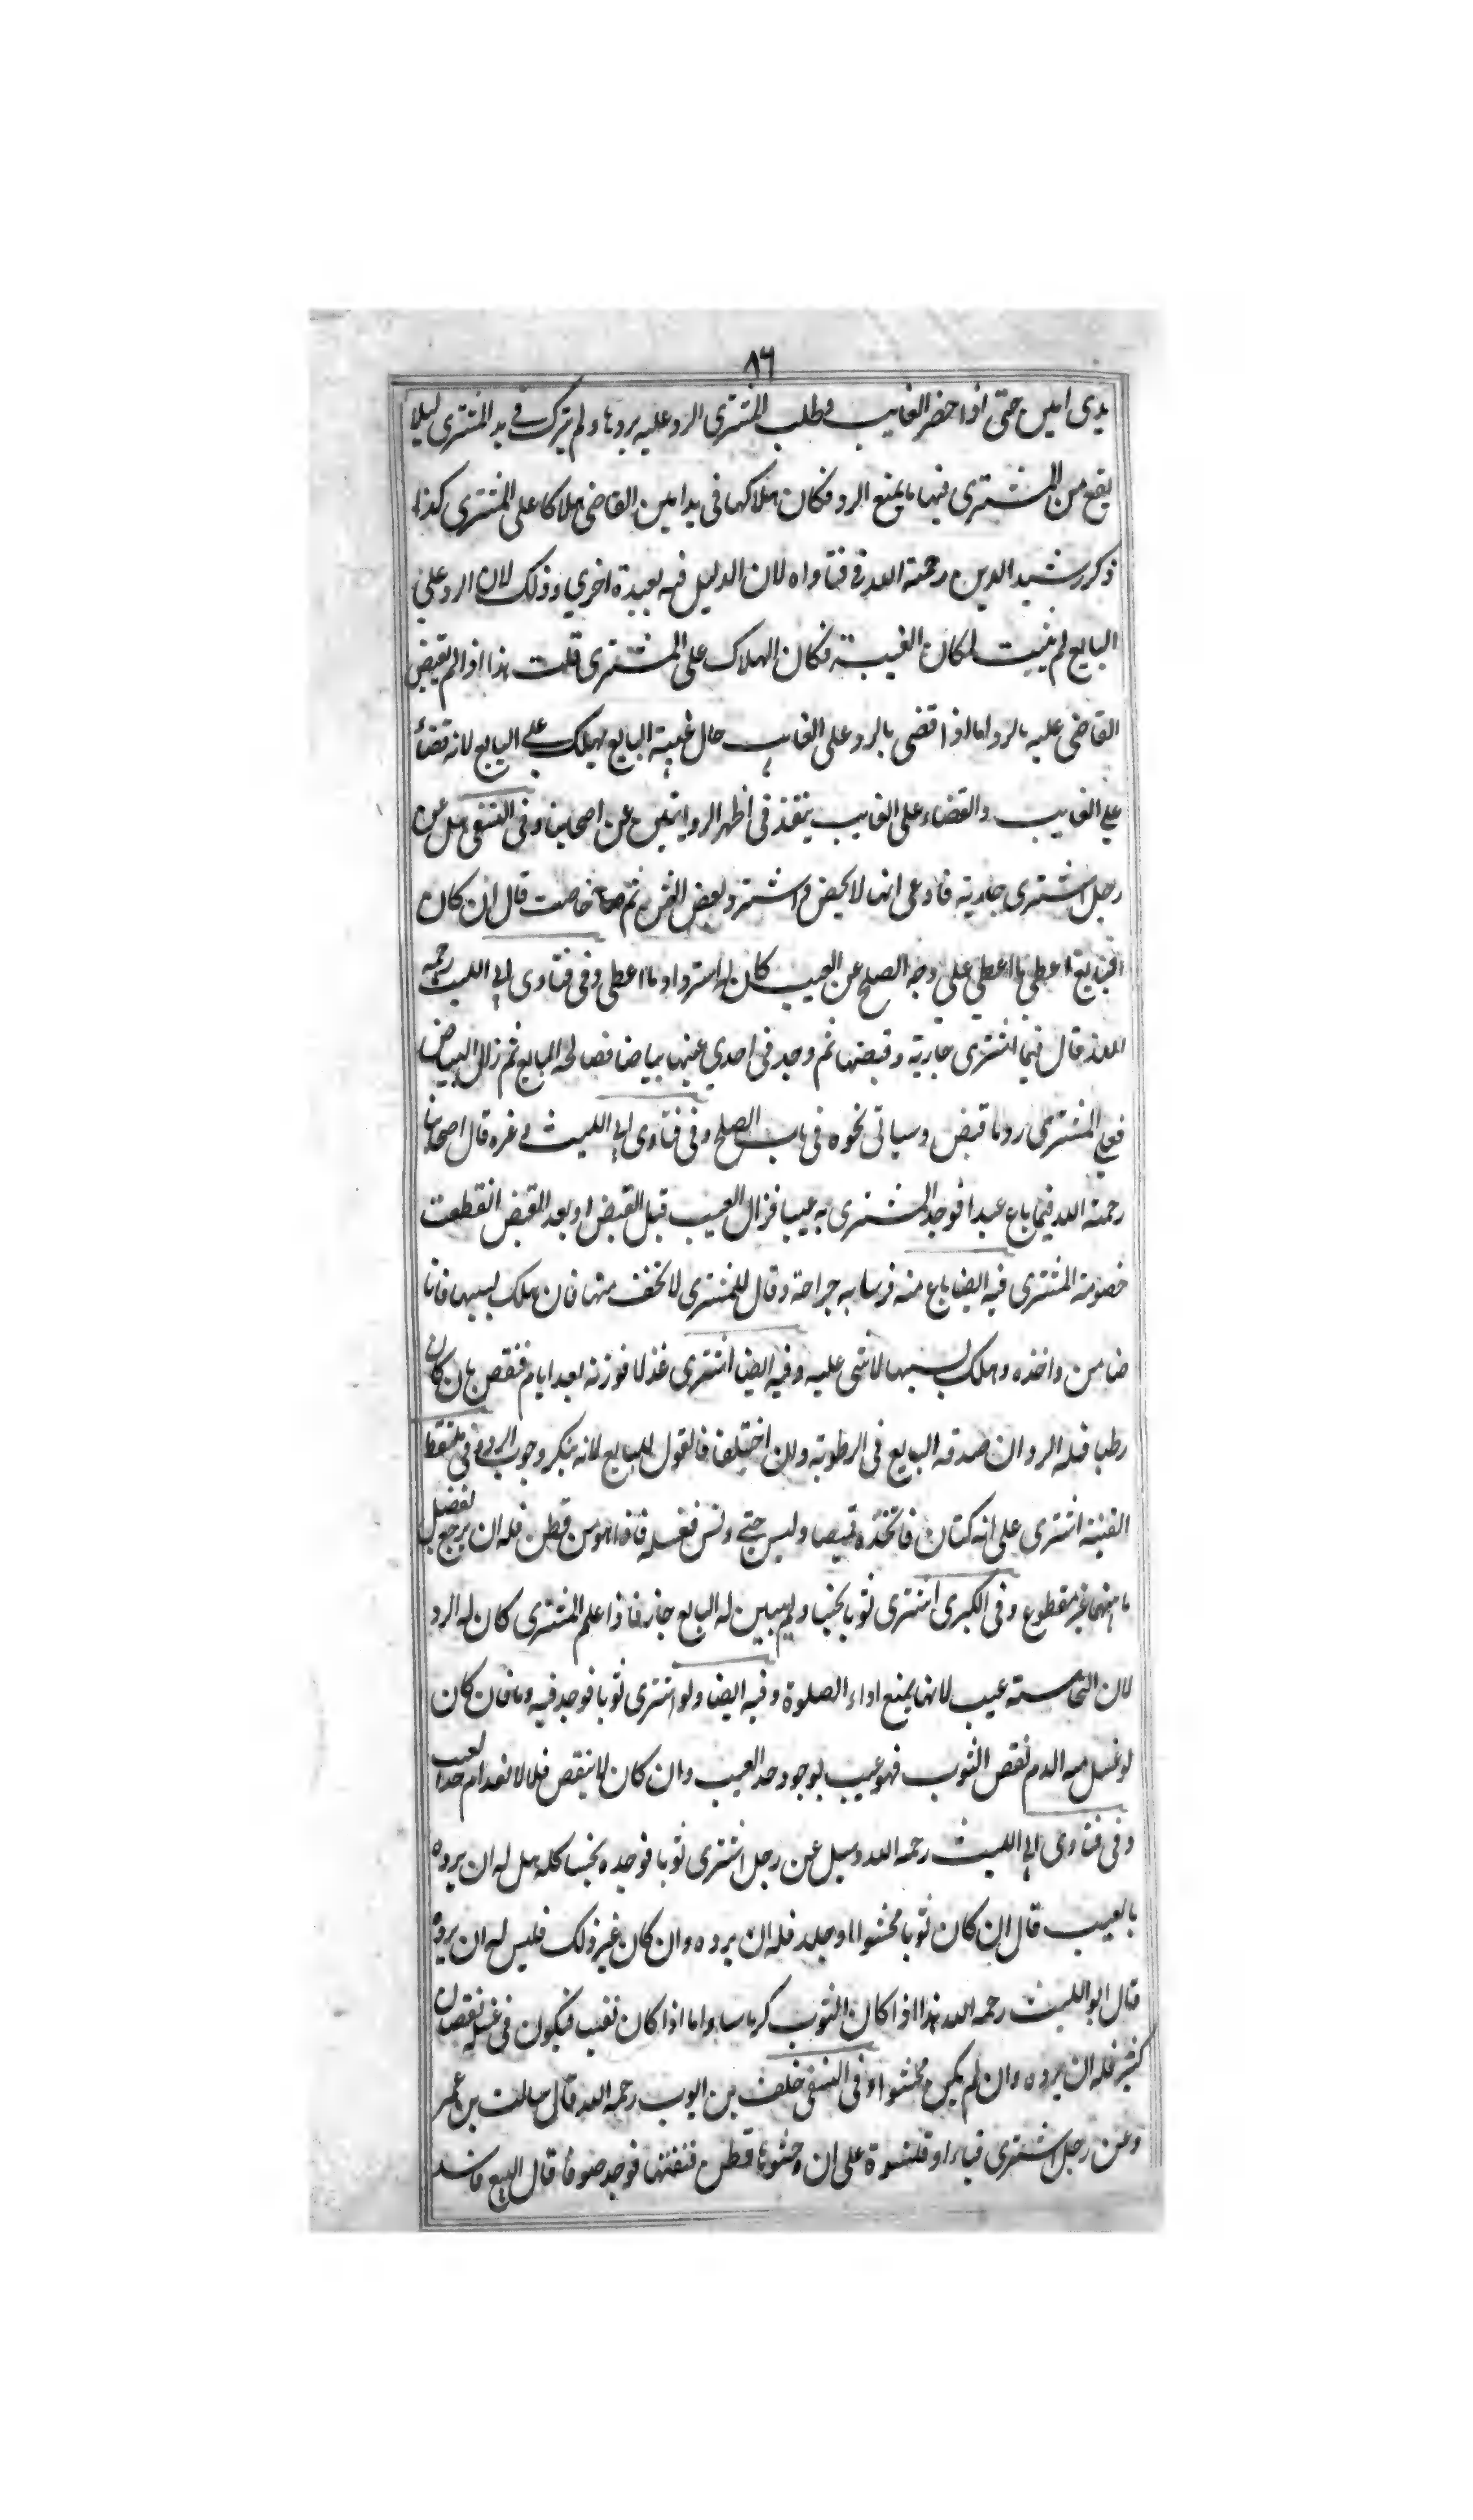 ٨٦
يدى امين حتى اذا حضر الغايب وطلب المشترى الرد عليه يردها ولم يترك فى يد المشترى ليلا
يقع من المشترى فيها ما يمنع الرد فكان هلاكها فى يد امين القاضى هلاكا على المشترى كذا
ذكر رشيد الدين رحمة الله فى فتاواه لان الدليل فيه لعبدة اخرى وذلك لان الرد على
البايع لم يثبت لمكان الغيبة فكان الهلاك على المشترى قلت هذا اذا لم يقض
القاضى عليه بالرد اما اذا قضى بالرد على الغايب حال غيبة البايع يهلك على البايع لانه قضاء
على الغايب والقضاء على الغايب ينفذ فى اظهر الروايتين عن اصحابنا وفى النسفى سل عن
رجل اشترى جارية فادعى انها لا تحيض واسترد بعض الثمن ثم حاضت قال ان كان
البايع اعطى ما اعطى على وجه الصلح عن العيب كان له استرداد ما اعطى وفى فتاوى ابى الليث رحمه
الله قال فيما اشترى جارية وقبضها ثم وجد فى احدى عينيها بياضا فصالحه البايع ثم زال البياض
فعلى المشترى رد ما قبض وسياتى نحوه فى باب الصلح وفى فتاوى ابى الليث وغيره قال اصحابنا
رحمة الله فيما باع عبدا فوجد المشترى به عيبا فزال العيب قبل القبض او بعد القبض انقطعت
خصومة المشترى فيه ايضا باع منه فرسا به جراحة وقال للمشترى لا تخف منها فان هلك بسببها فانا
ضامن واخذه وهلك بسببها لا شى عليه وفيه ايضا اشترى غزلا فوزنه بعد ايام فنقص بان كان
رطبا فله الرد ان صدقه البايع فى الرطوبة ولان اختلفا فالقول للبايع لانه ينكر وجوب الرد وفى ملتقط
القنية اشترى على انه كتان فاتخذه قميصا ولبس حتى ونس فغسله فاذا هو من قطن فله ان يرجع بفضل
ما بينهما غير مقطوع وفى الكبرى اشترى ثوبا نجسا ولم يبين له البايع جاز فاذا علم المشترى كان له الرد
لان النجاسة عيب لانها يمنع اداء الصلوة وفيه ايضا ولو اشترى ثوبا فوجد فيه دما فان كان
لو غسل منه الدم نقص الثوب فهو عيب لوجود حد العيب وان كان لا ينقص فلا لانعدام حد العيب
وفى فتاوى ابى الليث رحمه الله وسيل عن رجل اشترى ثوبا فوجده نجسا كله هل له ان يرده
بالعيب قال ان كان ثوبا محشوا او جلد فله ان يرده وان كان غير ذلك فليس له ان يرده
قال ابو الليث رحمه الله هذا اذا كان الثوب كرباسا واما اذا كان فيكون فى غسله نقصان
كثير فله ان يرده وان لم يكن محشوا وفى النسفى خلف بن ايوب رحمه الله قال سالت بن عمر
وعن رجل اشترى قباءا او قلنسوة على ان حشوها قطن ففتقها فوجد صوفا قال البيع فاسد